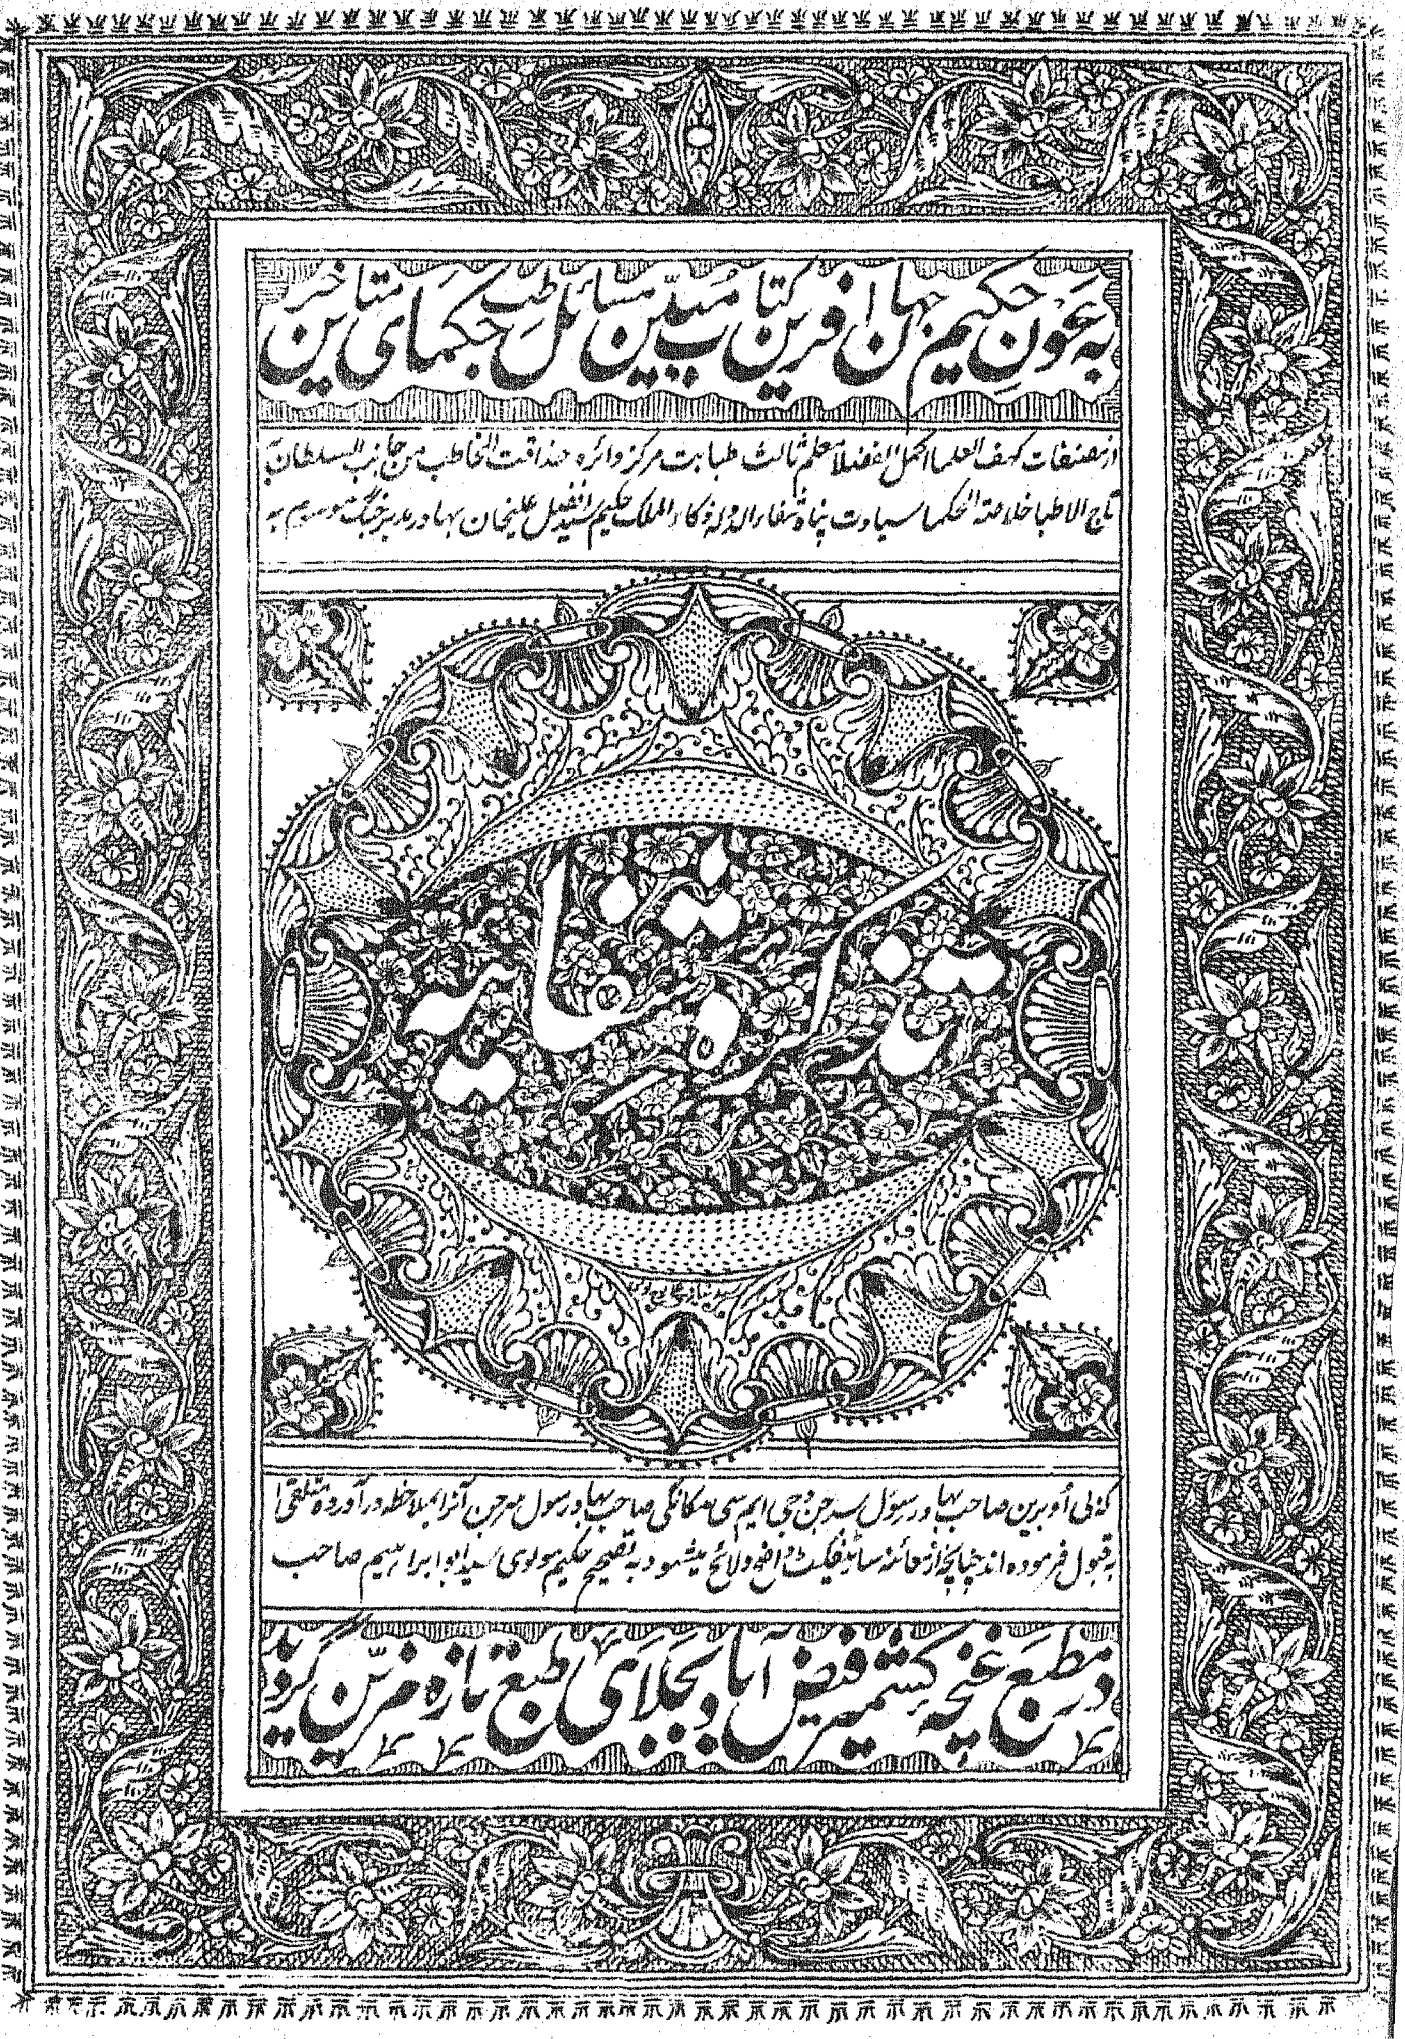 به عون حکیم جهان آفرین کتاب مبین مسائل طب حکمای متاخرین
از مصنفات کہف العلما اکمل الفضلا معلم ثالث طبابت مرکز دائرہ حذاقت المخاطب من جانب السلطان
تاج الاطبا خلاصۃ الحکما سیادت پناہ شفاء الدولہ ذکاء الملک حکیم سید افضل علیخان بہادر مدبر جنگ موسوم بہ
تذکرہ شفائیہ
کہ بی او برین صاحب بہادر سول سرجن و جی ایم سی مکانگی صاحب بہادر سول سرجن آنرا بملاحظہ درآوردہ متلقی
بقبول فرمودہ اند چنانچہ از معائنہ ساٹیفکیٹ واضح و لائح میشود بہ تصحیح حکیم مولوی سید ابو ابراہیم صاحب
در مطبع غنچہ کشمیر فیض آباد بجلای طبع تازہ مزین گردید